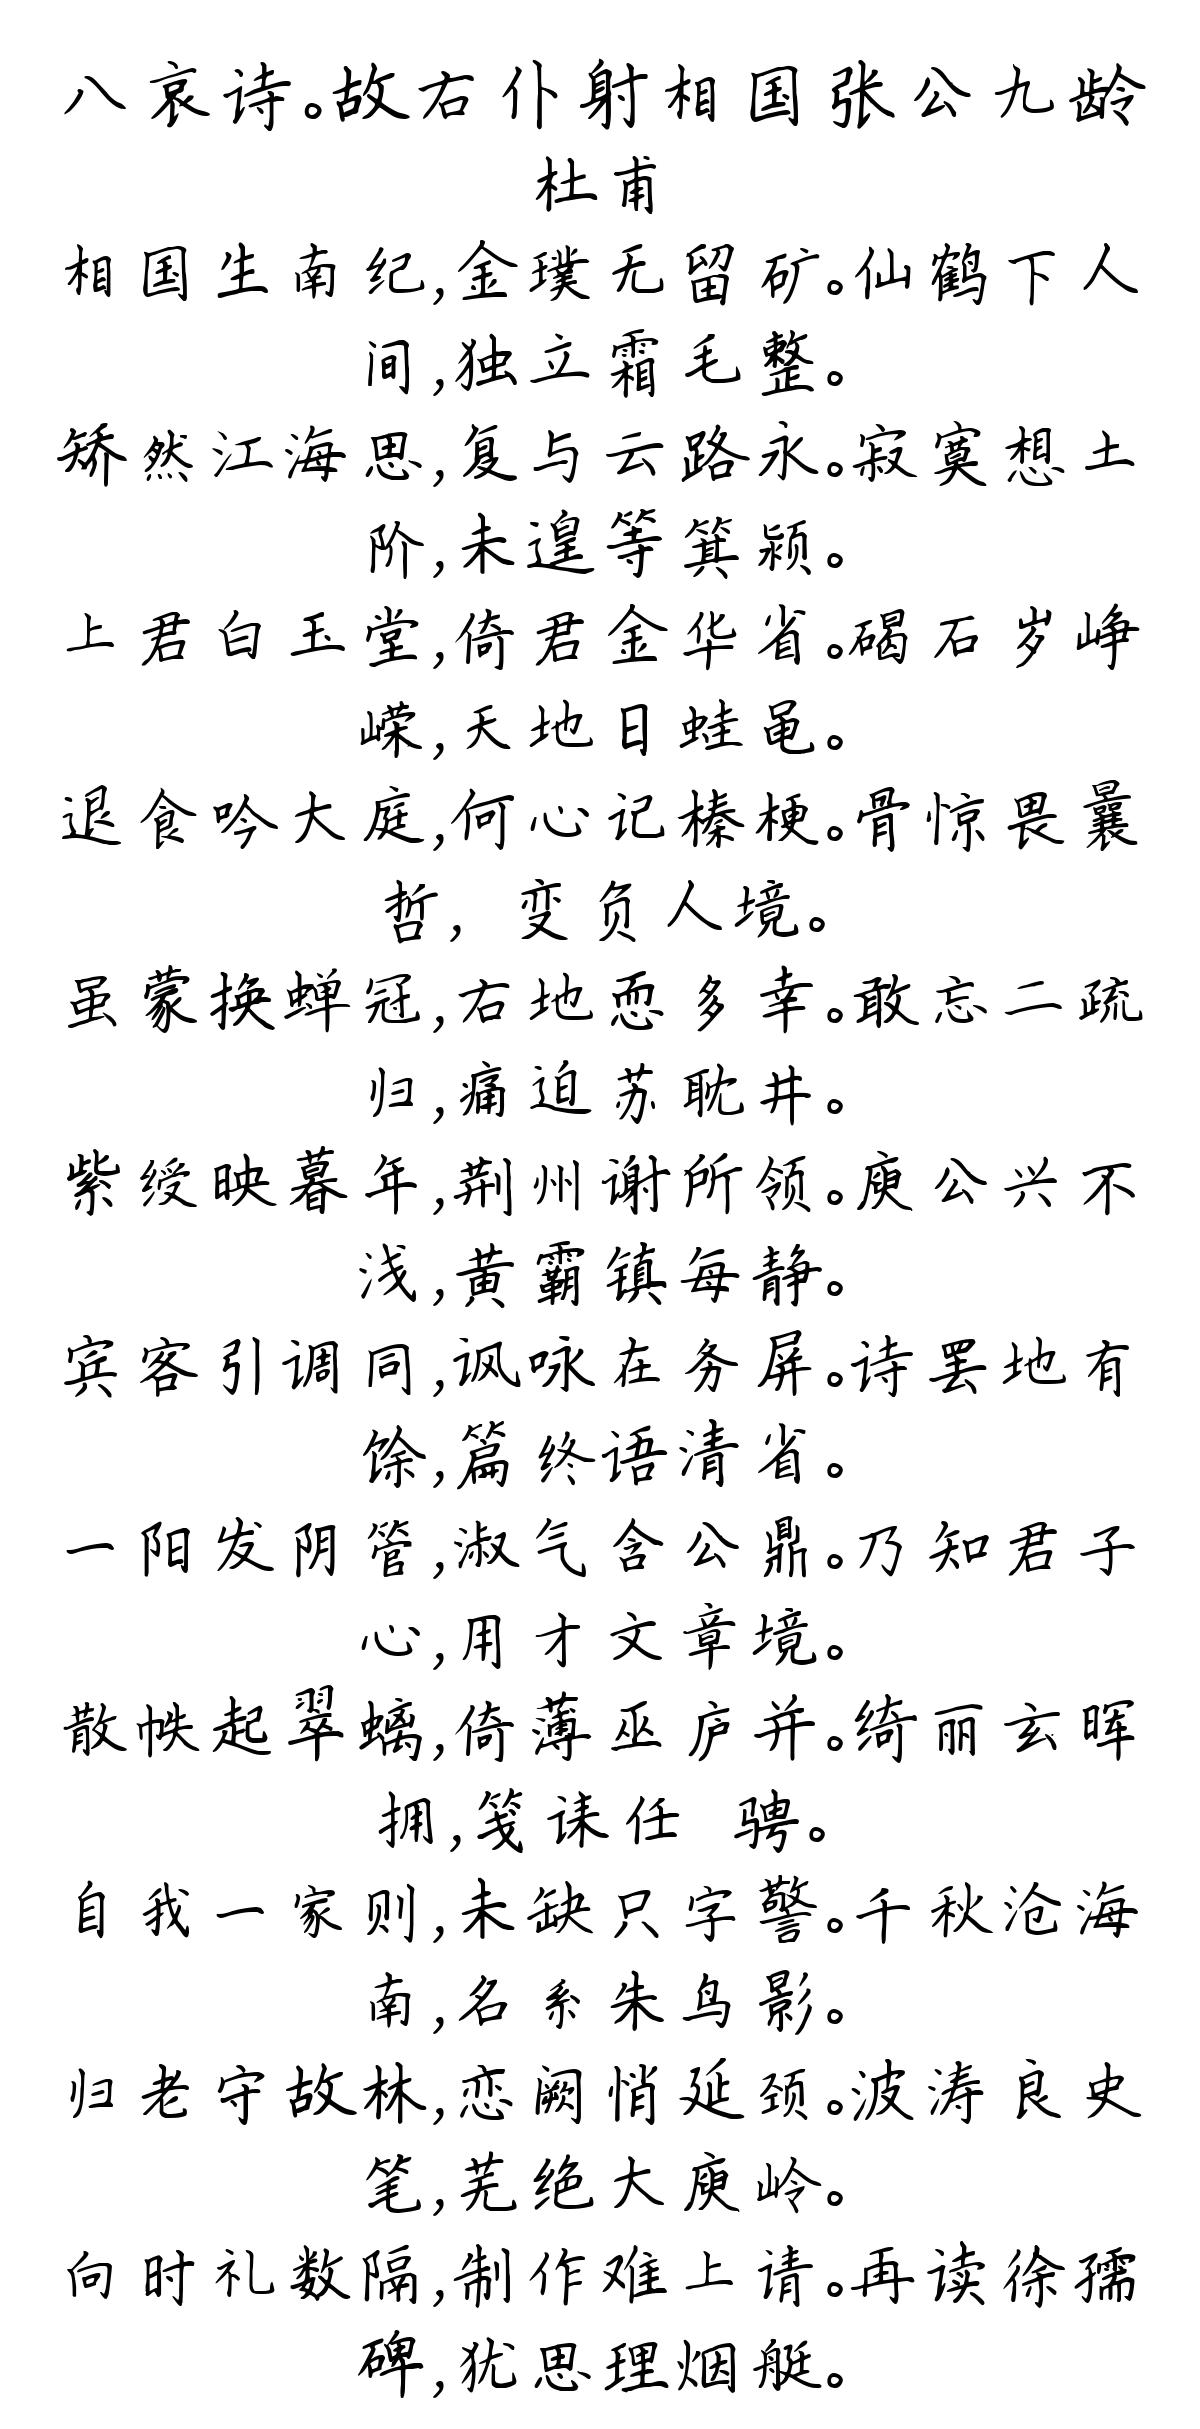 八哀诗。故右仆射相国张公九龄
杜甫
相国生南纪,金璞无留矿。仙鹤下人
间,独立霜毛整。
矫然江海思,复与云路永。寂寞想土
阶,未遑等箕颍。
上君白玉堂,倚君金华省。碣石岁峥
嵘,天地日蛙黾。
退食吟大庭,何心记榛梗。骨惊畏曩
哲, 变负人境。
虽蒙换蝉冠,右地恧多幸。敢忘二疏
归,痛迫苏耽井。
紫绶映暮年,荆州谢所领。庾公兴不
浅,黄霸镇每静。
宾客引调同,讽咏在务屏。诗罢地有
馀,篇终语清省。
一阳发阴管,淑气含公鼎。乃知君子
心,用才文章境。
散帙起翠螭,倚薄巫庐并。绮丽玄晖
拥,笺诔任 骋。
自我一家则,未缺只字警。千秋沧海
南,名系朱鸟影。
归老守故林,恋阙悄延颈。波涛良史
笔,芜绝大庾岭。
向时礼数隔,制作难上请。再读徐孺
碑,犹思理烟艇。